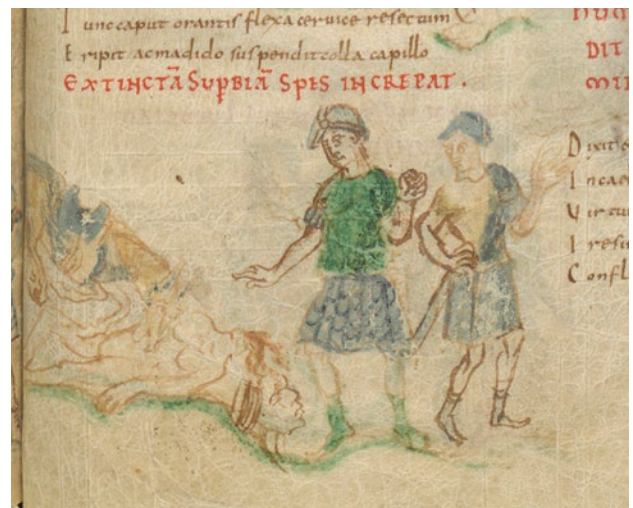 T unc caput orantis flexa ceruice resectum
E ripit ac madido suspendit colla capillo
EXTINCTĀ SUPBIĀ SPES INCREPAT.
DIT
D ixit e
I ncae
V ir tu
I resi
C onfl